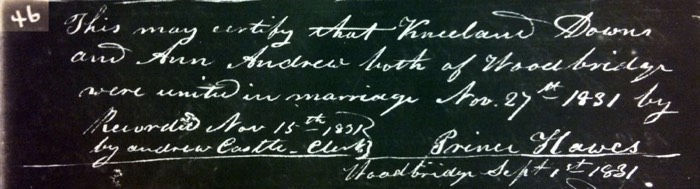 46
This may certify that Kneeland Downs
and Ann Andrew both of Woodbridge
were united in marriage Nov. 27th 1831 by
Recorded Nov 15th 1831
by Andrew Castle - Clerk} Prince Hawes
Woodbridge Sept 1st 1831.